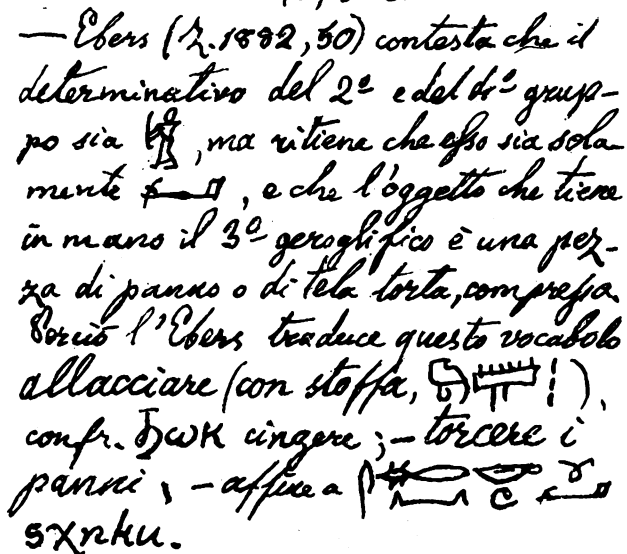 — Ebers (Z. 1882, 50) contesta che il
determinativo del 2º e del 4º grup-
po sia , ma ritiene che esso sia sola-
mente , e che l'oggetto che tiene
in mano il 3º geroglifico è una pez-
za di panno o di tela torta, compressa.
Perciò l'Ebers traduce questo vocabolo
allacciare (con stoffa, ),
confr. ϧωκ cingere; — torcere i
panni, — affine a
sχnku.